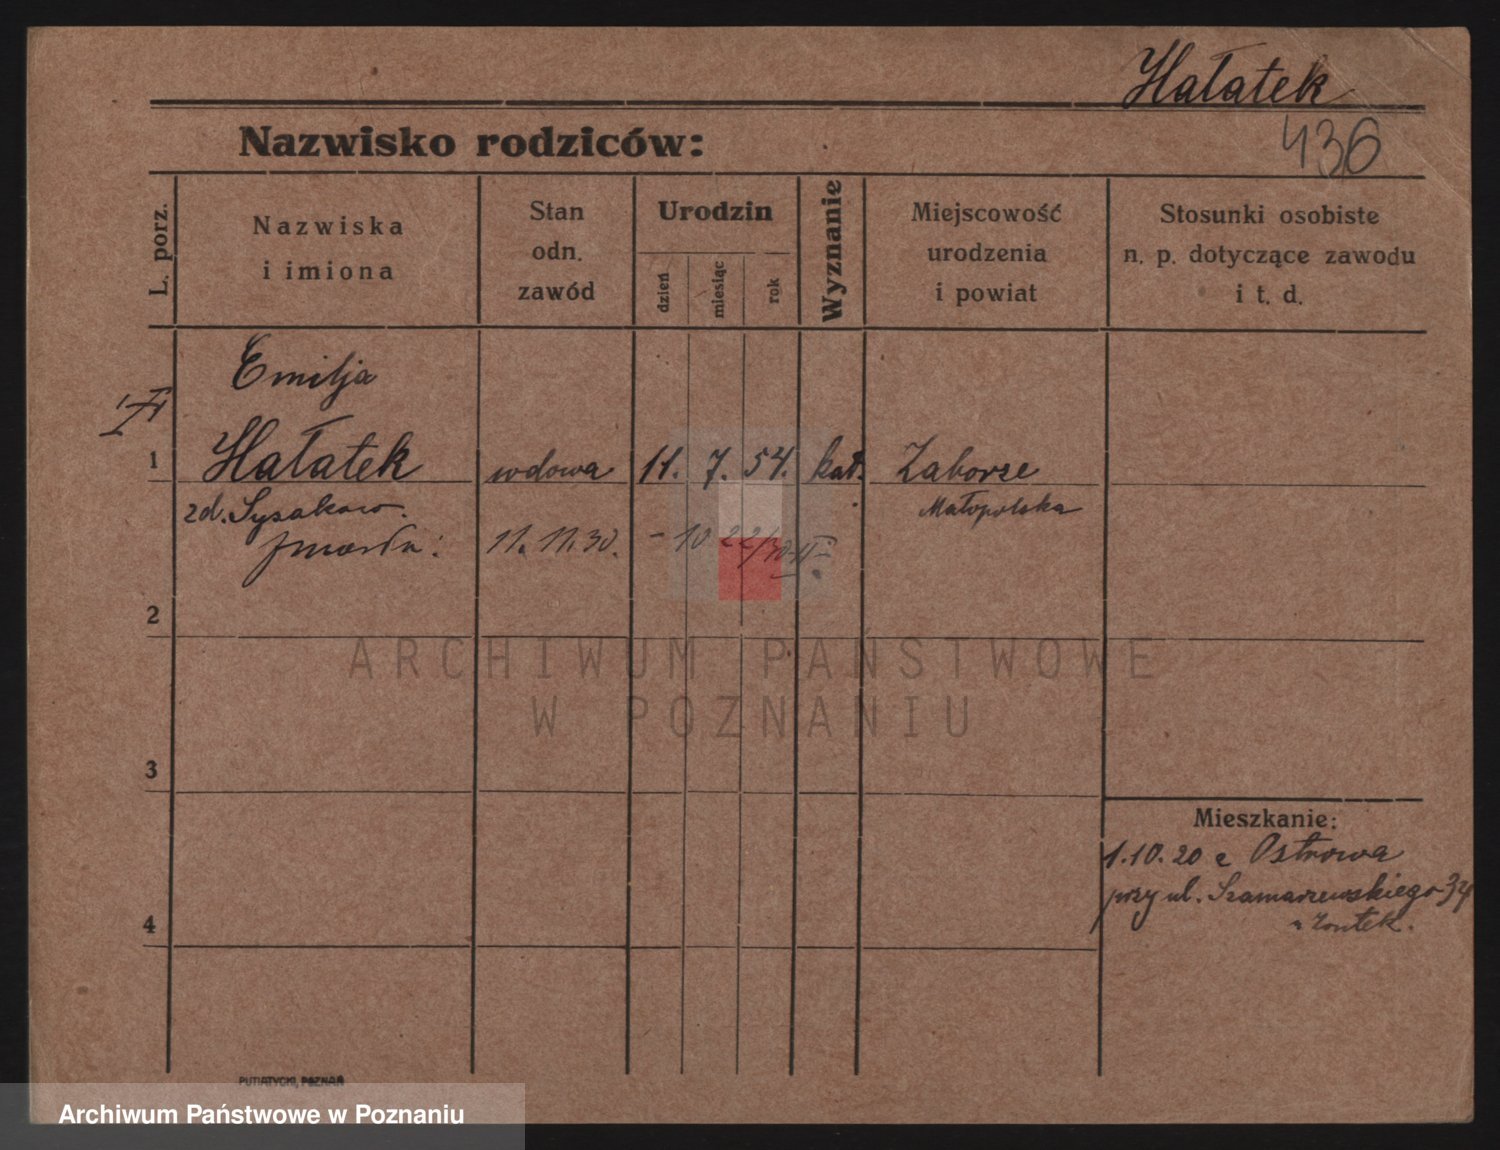 Hałatek
Nazwisko rodziców:
436
L. porz.
Nazwiska
i imiona
Stan
odn.
zawód
Urodzin
dzień
miesiąc
rok
Wyznanie
Miejscowość
urodzenia
i powiat
Stosunki osobiste
n. p. dotyczące zawodu
i t. d.
Emilja
1 Hałatek wdowa 11. 7. 54. kat. Zaborze
zd. Sysakow. Małopolska
zmarła: 11. 11. 30. - 10
2
ARCHIWUM PAŃSTWOWE
W POZNANIU
3
Mieszkanie:
1.10.20 z Ostrowa
przy ul. Szamarzewskiego 34
4
PUTIATYCKI, POZNAŃ
Archiwum Państwowe w Poznaniu